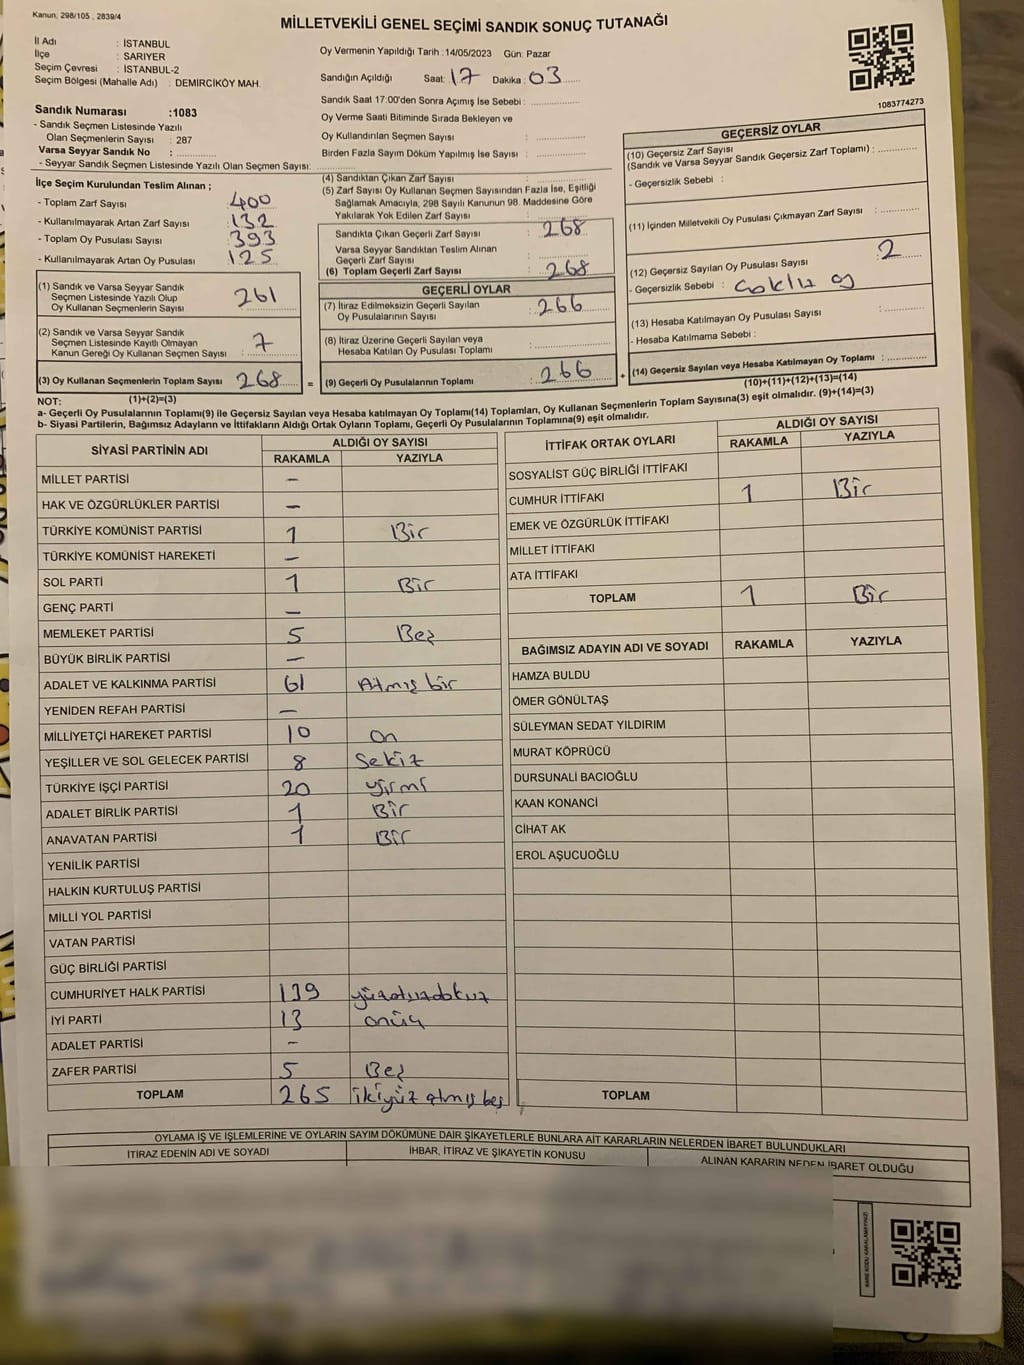 Kanun; 298/105 , 2839/4
MİLLETVEKİLİ GENEL SEÇİMİ SANDIK SONUÇ TUTANAĞI
İl Adı : İSTANBUL
İlçe : SARIYER
Seçim Çevresi : İSTANBUL-2
Seçim Bölgesi (Mahalle Adı) : DEMİRCİKÖY MAH.
Oy Vermenin Yapıldığı Tarih :14/05/2023 Gün: Pazar
Sandığın Açıldığı Saat: 17 Dakika: 03
Sandık Saat 17:00'den Sonra Açımış İse Sebebi :
Oy Verme Saati Bitiminde Sırada Bekleyen ve
Oy Kullandırılan Seçmen Sayısı :
Birden Fazla Sayım Döküm Yapılmış İse Sayısı :
1083774273
Sandık Numarası :1083
- Sandık Seçmen Listesinde Yazılı
Olan Seçmenlerin Sayısı : 287
Varsa Seyyar Sandık No :
- Seyyar Sandık Seçmen Listesinde Yazılı Olan Seçmen Sayısı:
İlçe Seçim Kurulundan Teslim Alınan ;
- Toplam Zarf Sayısı : 400
- Kullanılmayarak Artan Zarf Sayısı : 132
- Toplam Oy Pusulası Sayısı : 393
- Kullanılmayarak Artan Oy Pusulası : 125
(1) Sandık ve Varsa Seyyar Sandık
Seçmen Listesinde Yazılı Olup
Oy Kullanan Seçmenlerin Sayısı 261
(2) Sandık ve Varsa Seyyar Sandık
Seçmen Listesinde Kayıtlı Olmayan
Kanun Gereği Oy Kullanan Seçmen Sayısı : 7
(3) Oy Kullanan Seçmenlerin Toplam Sayısı 268 =
(1)+(2)=(3)
(4) Sandıktan Çıkan Zarf Sayısı :
(5) Zarf Sayısı Oy Kullanan Seçmen Sayısından Fazla İse, Eşitliği
Sağlamak Amacıyla, 298 Sayılı Kanunun 98. Maddesine Göre
Yakılarak Yok Edilen Zarf Sayısı :
Sandıkta Çıkan Geçerli Zarf Sayısı : 268
Varsa Seyyar Sandıktan Teslim Alınan
Geçerli Zarf Sayısı :
(6) Toplam Geçerli Zarf Sayısı : 268
GEÇERLİ OYLAR
(7) İtiraz Edilmeksizin Geçerli Sayılan
Oy Pusulalarının Sayısı : 266
(8) İtiraz Üzerine Geçerli Sayılan veya
Hesaba Katılan Oy Pusulası Toplamı :
(9) Geçerli Oy Pusulalarının Toplamı : 266 +
GEÇERSİZ OYLAR
(10) Geçersiz Zarf Sayısı
(Sandık ve Varsa Seyyar Sandık Geçersiz Zarf Toplamı) :
- Geçersizlik Sebebi :
(11) İçinden Milletvekili Oy Pusulası Çıkmayan Zarf Sayısı :
(12) Geçersiz Sayılan Oy Pusulası Sayısı : 2
- Geçersizlik Sebebi : Çoklu oy
(13) Hesaba Katılmayan Oy Pusulası Sayısı :
- Hesaba Katılmama Sebebi :
(14) Geçersiz Sayılan veya Hesaba Katılmayan Oy Toplamı :
(10)+(11)+(12)+(13)=(14)
NOT:
a- Geçerli Oy Pusulalarının Toplamı(9) ile Geçersiz Sayılan veya Hesaba katılmayan Oy Toplamı(14) Toplamları, Oy Kullanan Seçmenlerin Toplam Sayısına(3) eşit olmalıdır. (9)+(14)=(3)
b- Siyasi Partilerin, Bağımsız Adayların ve İttifakların Aldığı Ortak Oyların Toplamı, Geçerli Oy Pusulalarının Toplamına(9) eşit olmalıdır.
SİYASİ PARTİNİN ADI ALDIĞI OY SAYISI
RAKAMLA YAZIYLA
MİLLET PARTİSİ –
HAK VE ÖZGÜRLÜKLER PARTİSİ –
TÜRKİYE KOMÜNİST PARTİSİ 1 Bir
TÜRKİYE KOMÜNİST HAREKETİ –
SOL PARTİ 1 Bir
GENÇ PARTİ –
MEMLEKET PARTİSİ 5 Beş
BÜYÜK BİRLİK PARTİSİ –
ADALET VE KALKINMA PARTİSİ 61 Atmış bir
YENİDEN REFAH PARTİSİ –
MİLLİYETÇİ HAREKET PARTİSİ 10 on
YEŞİLLER VE SOL GELECEK PARTİSİ 8 Sekiz
TÜRKİYE İŞÇİ PARTİSİ 20 yirmi
ADALET BİRLİK PARTİSİ 1 Bir
ANAVATAN PARTİSİ 1 Bir
YENİLİK PARTİSİ
HALKIN KURTULUŞ PARTİSİ
MİLLİ YOL PARTİSİ
VATAN PARTİSİ
GÜÇ BİRLİĞİ PARTİSİ
CUMHURİYET HALK PARTİSİ 139 yüzotuzdokuz
İYİ PARTİ 13 onüç
ADALET PARTİSİ –
ZAFER PARTİSİ 5 Beş
TOPLAM 265 ikiyüz atmış beş
İTTİFAK ORTAK OYLARI ALDIĞI OY SAYISI
RAKAMLA YAZIYLA
SOSYALİST GÜÇ BİRLİĞİ İTTİFAKI
CUMHUR İTTİFAKI 1 Bir
EMEK VE ÖZGÜRLÜK İTTİFAKI
MİLLET İTTİFAKI
ATA İTTİFAKI
TOPLAM 1 Bir
BAĞIMSIZ ADAYIN ADI VE SOYADI RAKAMLA YAZIYLA
HAMZA BULDU
ÖMER GÖNÜLTAŞ
SÜLEYMAN SEDAT YILDIRIM
MURAT KÖPRÜCÜ
DURSUNALİ BACIOĞLU
KAAN KONANCİ
CİHAT AK
EROL AŞUCUOĞLU
TOPLAM
OYLAMA İŞ VE İŞLEMLERİNE VE OYLARIN SAYIM DÖKÜMÜNE DAİR ŞİKAYETLERLE BUNLARA AİT KARARLARIN NELERDEN İBARET BULUNDUKLARI
İTİRAZ EDENİN ADI VE SOYADI İHBAR, İTİRAZ VE ŞİKAYETİN KONUSU ALINAN KARARIN NEDEN İBARET OLDUĞU
KARE KODU KARALAMAYINIZ!